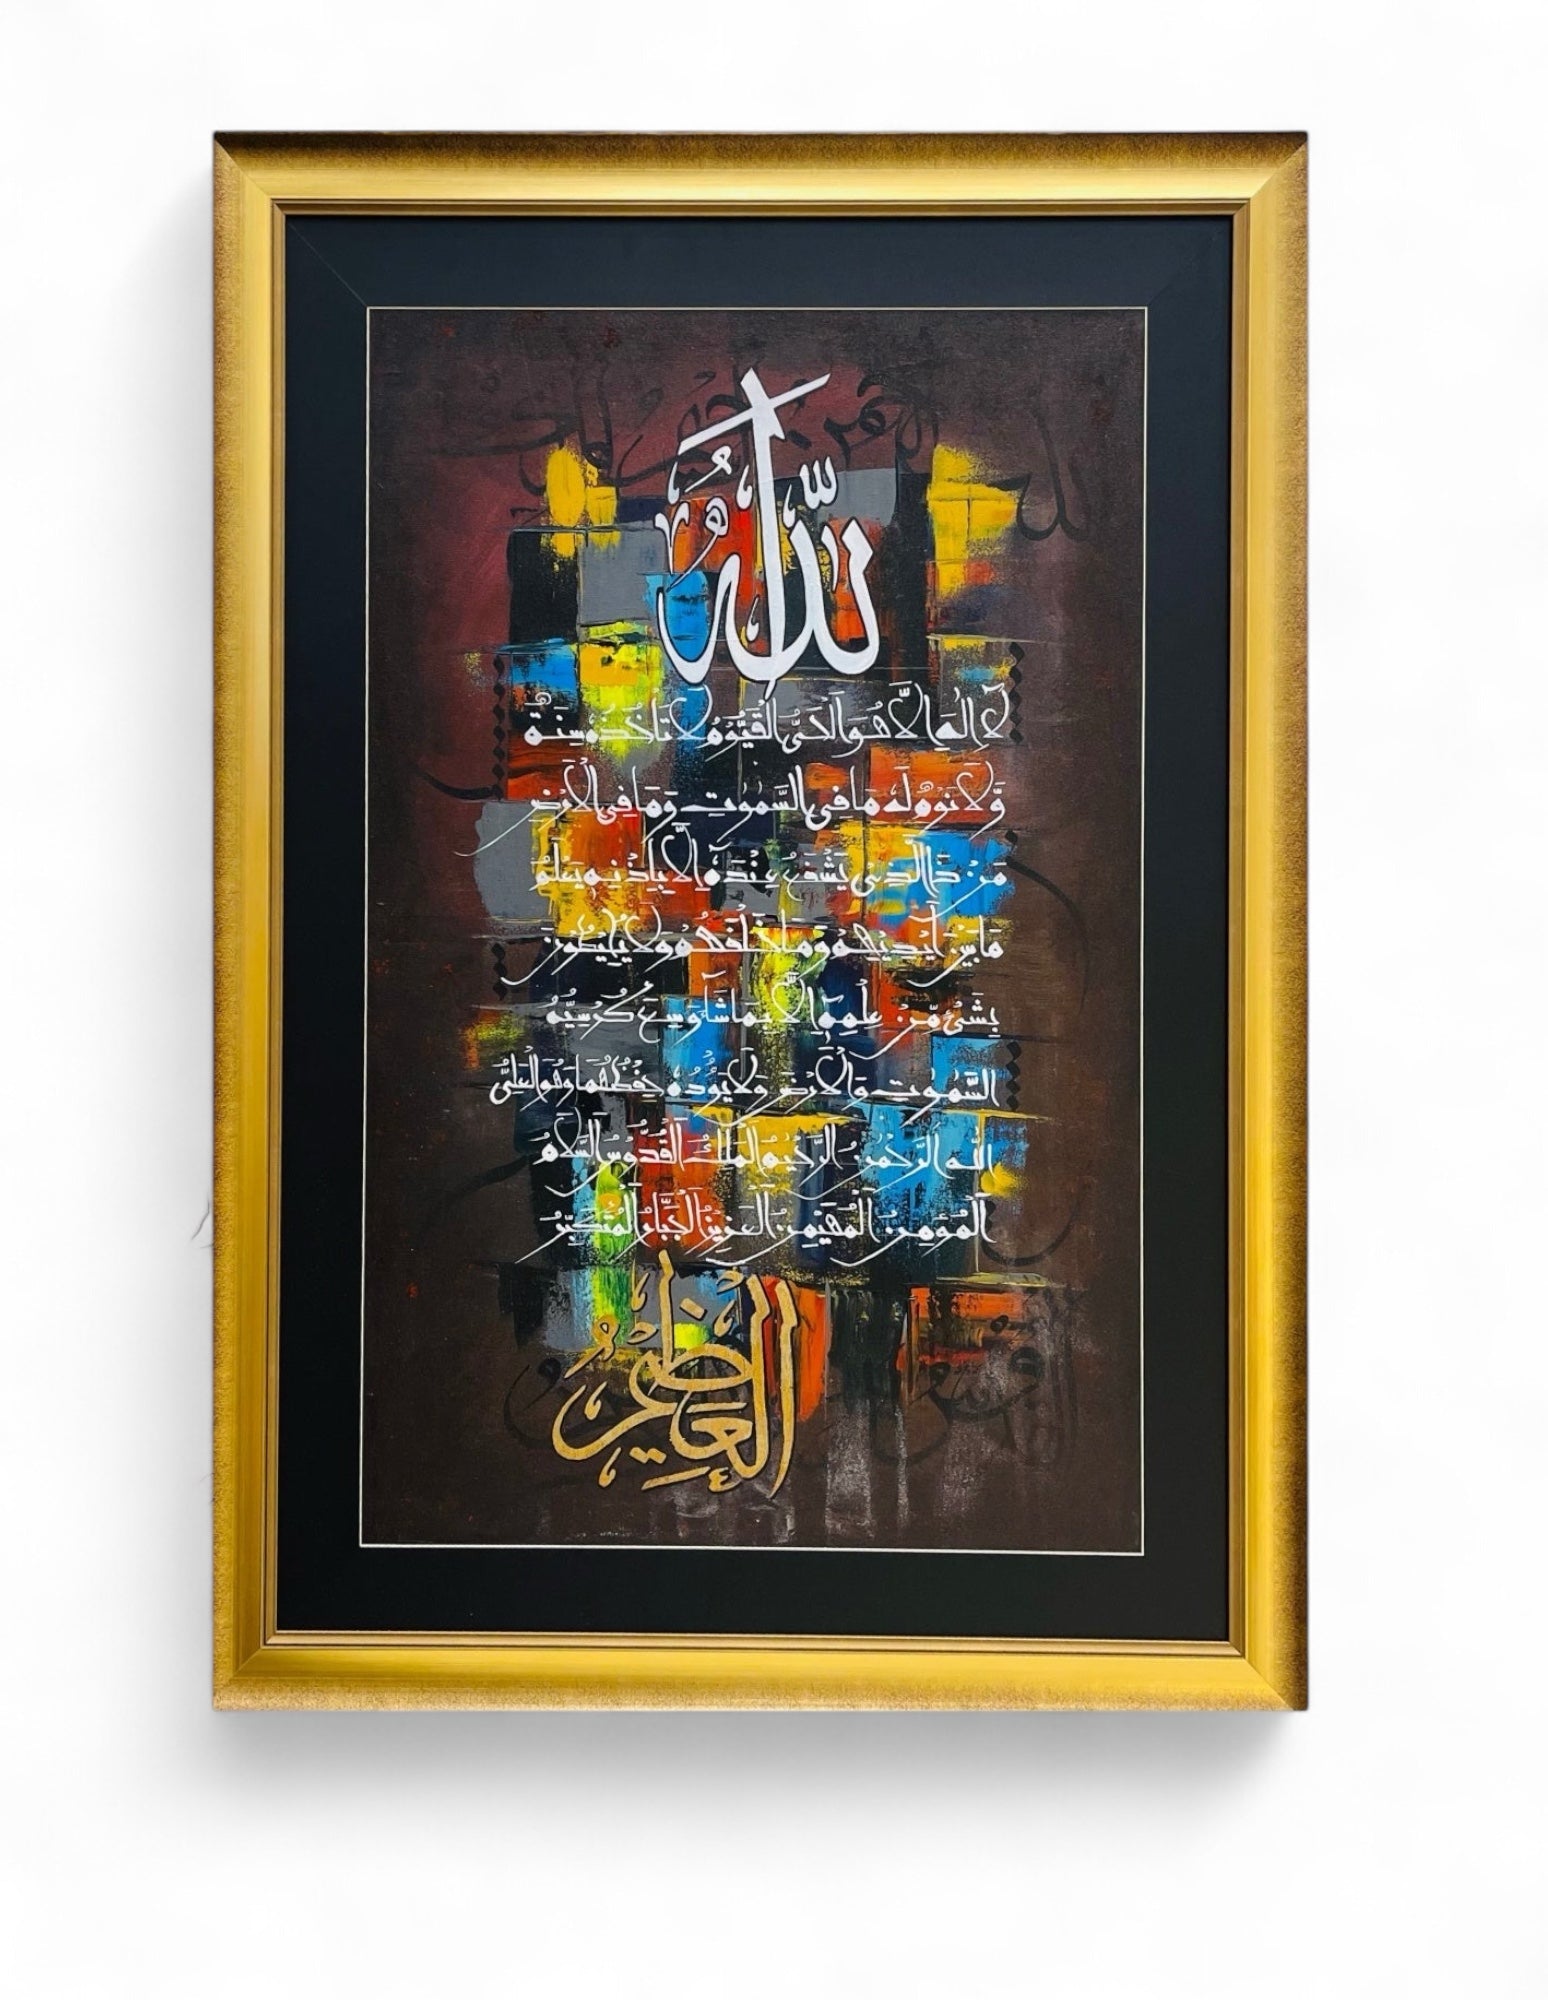 اللهُ
لَا اِلٰهَ اِلَّا هُوَ الْحَىُّ الْقَيُّوْمُ لَا تَاْخُذُهٗ سِنَةٌ
وَّلَا نَوْمٌ لَهٗ مَا فِى السَّمٰوٰتِ وَمَا فِى الْاَرْضِ
مَنْ ذَا الَّذِىْ يَشْفَعُ عِنْدَهٗ اِلَّا بِاِذْنِهٖ يَعْلَمُ
مَا بَيْنَ اَيْدِيْهِمْ وَمَا خَلْفَهُمْ وَلَا يُحِيْطُوْنَ
بِشَىْءٍ مِّنْ عِلْمِهٖ اِلَّا بِمَا شَآءَ وَسِعَ كُرْسِيُّهُ
السَّمٰوٰتِ وَالْاَرْضَ وَلَا يَؤُدُهٗ حِفْظُهُمَا وَهُوَ الْعَلِىُّ
اللّٰه الرَّحْمٰنُ الرَّحِيْمُ الْمَلِكُ الْقُدُّوْسُ السَّلَامُ
اَلْمُؤْمِنُ الْمُهَيْمِنُ الْعَزِيْزُ الْجَبَّارُ الْمُتَكَبِّرُ
الْعَظِيْمُ